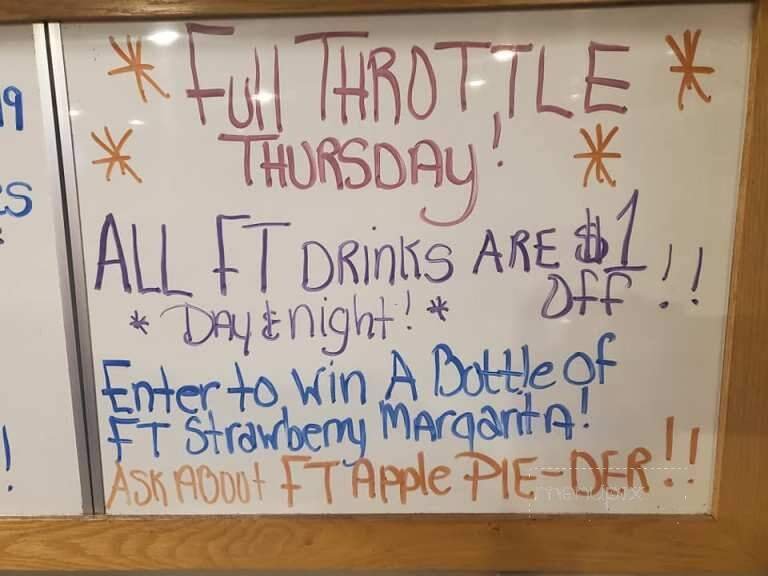 19
Full THROTTLE
THURSDAY!
ALL FT DRinks ARE $1
Off!!
* DAY & night! *
Enter to win A Bottle of
FT Strawberry MARgaritA!
ASK ABOut FT Apple PIE-DER!!
menupix